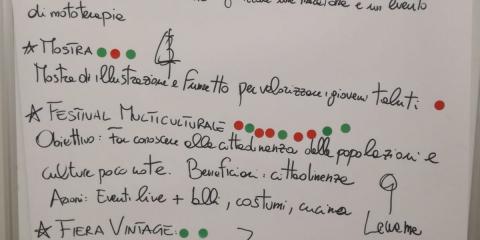 e un evento
di mototerapia
☆ MOSTRA
Mostra di illustrazione e Fumetto per valorizzare i giovani talenti
☆ FESTIVAL MULTICULTURALE
Obiettivo: Far conoscere alla cittadinanza delle popolazioni e
culture poco note. Beneficiari: cittadinanza
Azioni: Eventi live + balli, costumi, cucina
Legame
☆ FIERA VINTAGE: